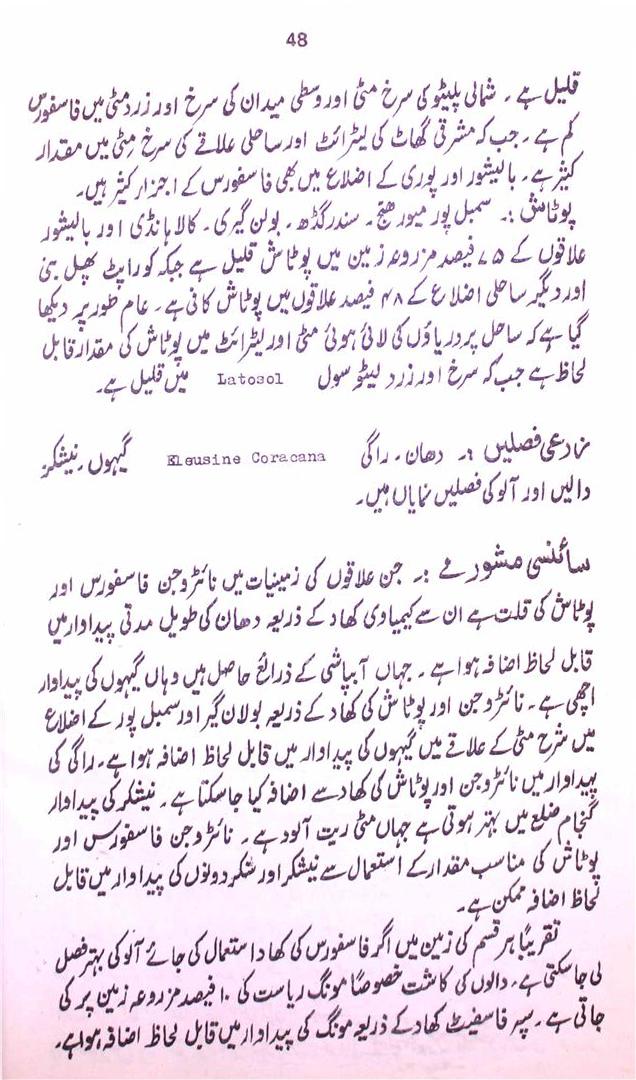 48
قلیل ہے ۔ شمالی پلیٹو کی سرخ مٹی اور وسطی میدان کی سرخ اور زرد مٹی میں فاسفورس
کم ہے ۔ جب کہ مشرقی گھاٹ کی لیٹرائٹ اور ساحلی علاقے کی سرخ مٹی میں مقدار
کثیر ہے ۔ بالیشور اور پوری کے اضلاع میں بھی فاسفورس کے اجزار کثیر ہیں۔
پوٹاش :۔ سمبل پور میور بھنج ۔ سندر گڈھ ۔ بولن گیری ۔ کالا ہانڈی اور بالیشور
علاقوں کے ۷۵ فیصد مزروعہ زمین میں پوٹاش قلیل ہے جبکہ کوراپٹ پھل بنی
اور دیگر ساحلی اضلاع کے ۴۸ فیصد علاقوں میں پوٹاش کافی ہے ۔ عام طور پر دیکھا
گیا ہے کہ ساحل پر دریاؤں کی لائی ہوئی مٹی اور لیٹرائٹ میں پوٹاش کی مقدار قابل
لحاظ ہے جب کہ سرخ اور زرد لیٹو سول Latosol میں قلیل ہے۔
زراعی فصلیں :۔ دھان ۔ راگی Eleusine Coracana گیہوں ۔ نیشکر
دالیں اور آلو کی فصلیں نمایاں ہیں۔
سائنسی مشورے :۔ جن علاقوں کی زمینیات میں نائٹروجن فاسفورس اور
پوٹاش کی قلت ہے ان سے کیمیاوی کھاد کے ذریعہ دھان کی طویل مدتی پیداوار میں
قابل لحاظ اضافہ ہوا ہے ۔ جہاں آبپاشی کے ذرائع حاصل ہیں وہاں گیہوں کی پیداوار
اچھی ہے ۔ نائٹروجن اور پوٹاش کی کھاد کے ذریعہ بولان گیر اور سمبل پور کے اضلاع
میں سُرخ مٹی کے علاقے میں گیہوں کی پیداوار میں قابل لحاظ اضافہ ہوا ہے ۔ راگی کی
پیداوار میں نائٹروجن اور پوٹاش کی کھاد سے اضافہ کیا جاسکتا ہے ۔ نیشکر کی پیداوار
گنجام ضلع میں بہتر ہوتی ہے جہاں مٹی ریت آلود ہے ۔ نائٹروجن فاسفورس اور
پوٹاش کی مناسب مقدار کے استعمال سے نیشکر اور شکر دونوں کی پیداوار میں قابل
لحاظ اضافہ ممکن ہے ۔
تقریبًا ہر قسم کی زمین میں اگر فاسفورس کی کھاد استعمال کی جائے آلو کی بہتر فصل
لی جاسکتی ہے ۔ دالوں کی کاشت خصوصًا مونگ ریاست کی ۱۰ فیصد مزروعہ زمین پر کی
جاتی ہے ۔ سپر فاسفیٹ کھاد کے ذریعہ مونگ کی پیداوار میں قابل لحاظ اضافہ ہوا ہے۔